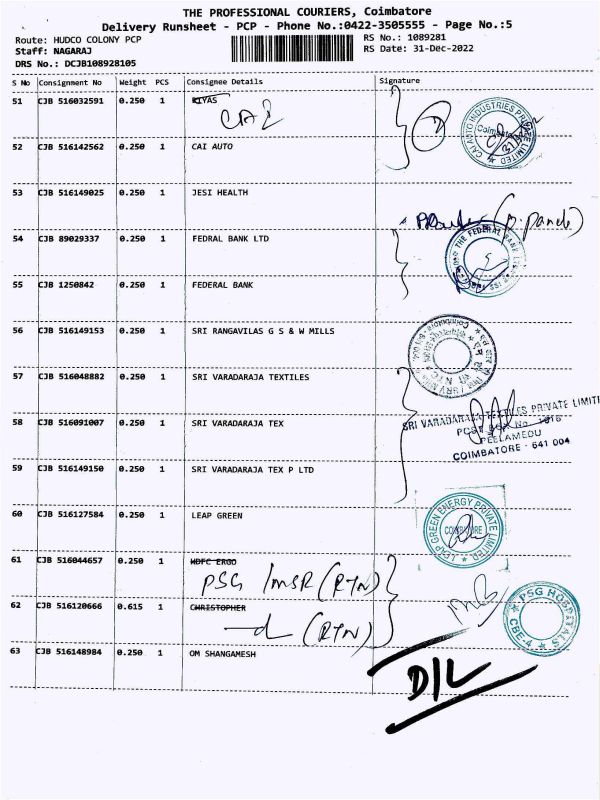 THE PROFESSIONAL COURIERS, Coimbatore
Delivery Runsheet - PCP - Phone No.:0422-3505555 - Page No.:5
Route: HUDCO COLONY PCP RS No.: 1089281
Staff: NAGARAJ RS Date: 31-Dec-2022
DRS No.: DCJB108928105
S No Consignment No Weight PCS Consignee Details Signature
51 CJB 516032591 0.250 1 RIYAS
CAI
CAI AUTO INDUSTRIES PRIVATE LIMITED
Coimbatore
52 CJB 516142562 0.250 1 CAI AUTO
53 CJB 516149025 0.250 1 JESI HEALTH
54 CJB 89029337 0.250 1 FEDRAL BANK LTD
THE FEDERAL BANK
55 CJB 1250842 0.250 1 FEDERAL BANK
56 CJB 516149153 0.250 1 SRI RANGAVILAS G S & W MILLS
57 CJB 516048882 0.250 1 SRI VARADARAJA TEXTILES
58 CJB 516091007 0.250 1 SRI VARADARAJA TEX
SRI VARADARAJA TEXTILES PRIVATE LIMITE
POST BOX No. 1616
PEELAMEDU
COIMBATORE - 641 004
59 CJB 516149150 0.250 1 SRI VARADARAJA TEX P LTD
60 CJB 516127584 0.250 1 LEAP GREEN
LEAP GREEN ENERGY PRIVATE LIMITED
COIMBATORE
61 CJB 516044657 0.250 1 HDFC ERGO
PSG IMSR (RTN)
62 CJB 516120666 0.615 1 CHRISTOPHER
(RTN)
PSG HOSPITALS
CBE-4
63 CJB 516148984 0.250 1 OM SHANGAMESH
D/L